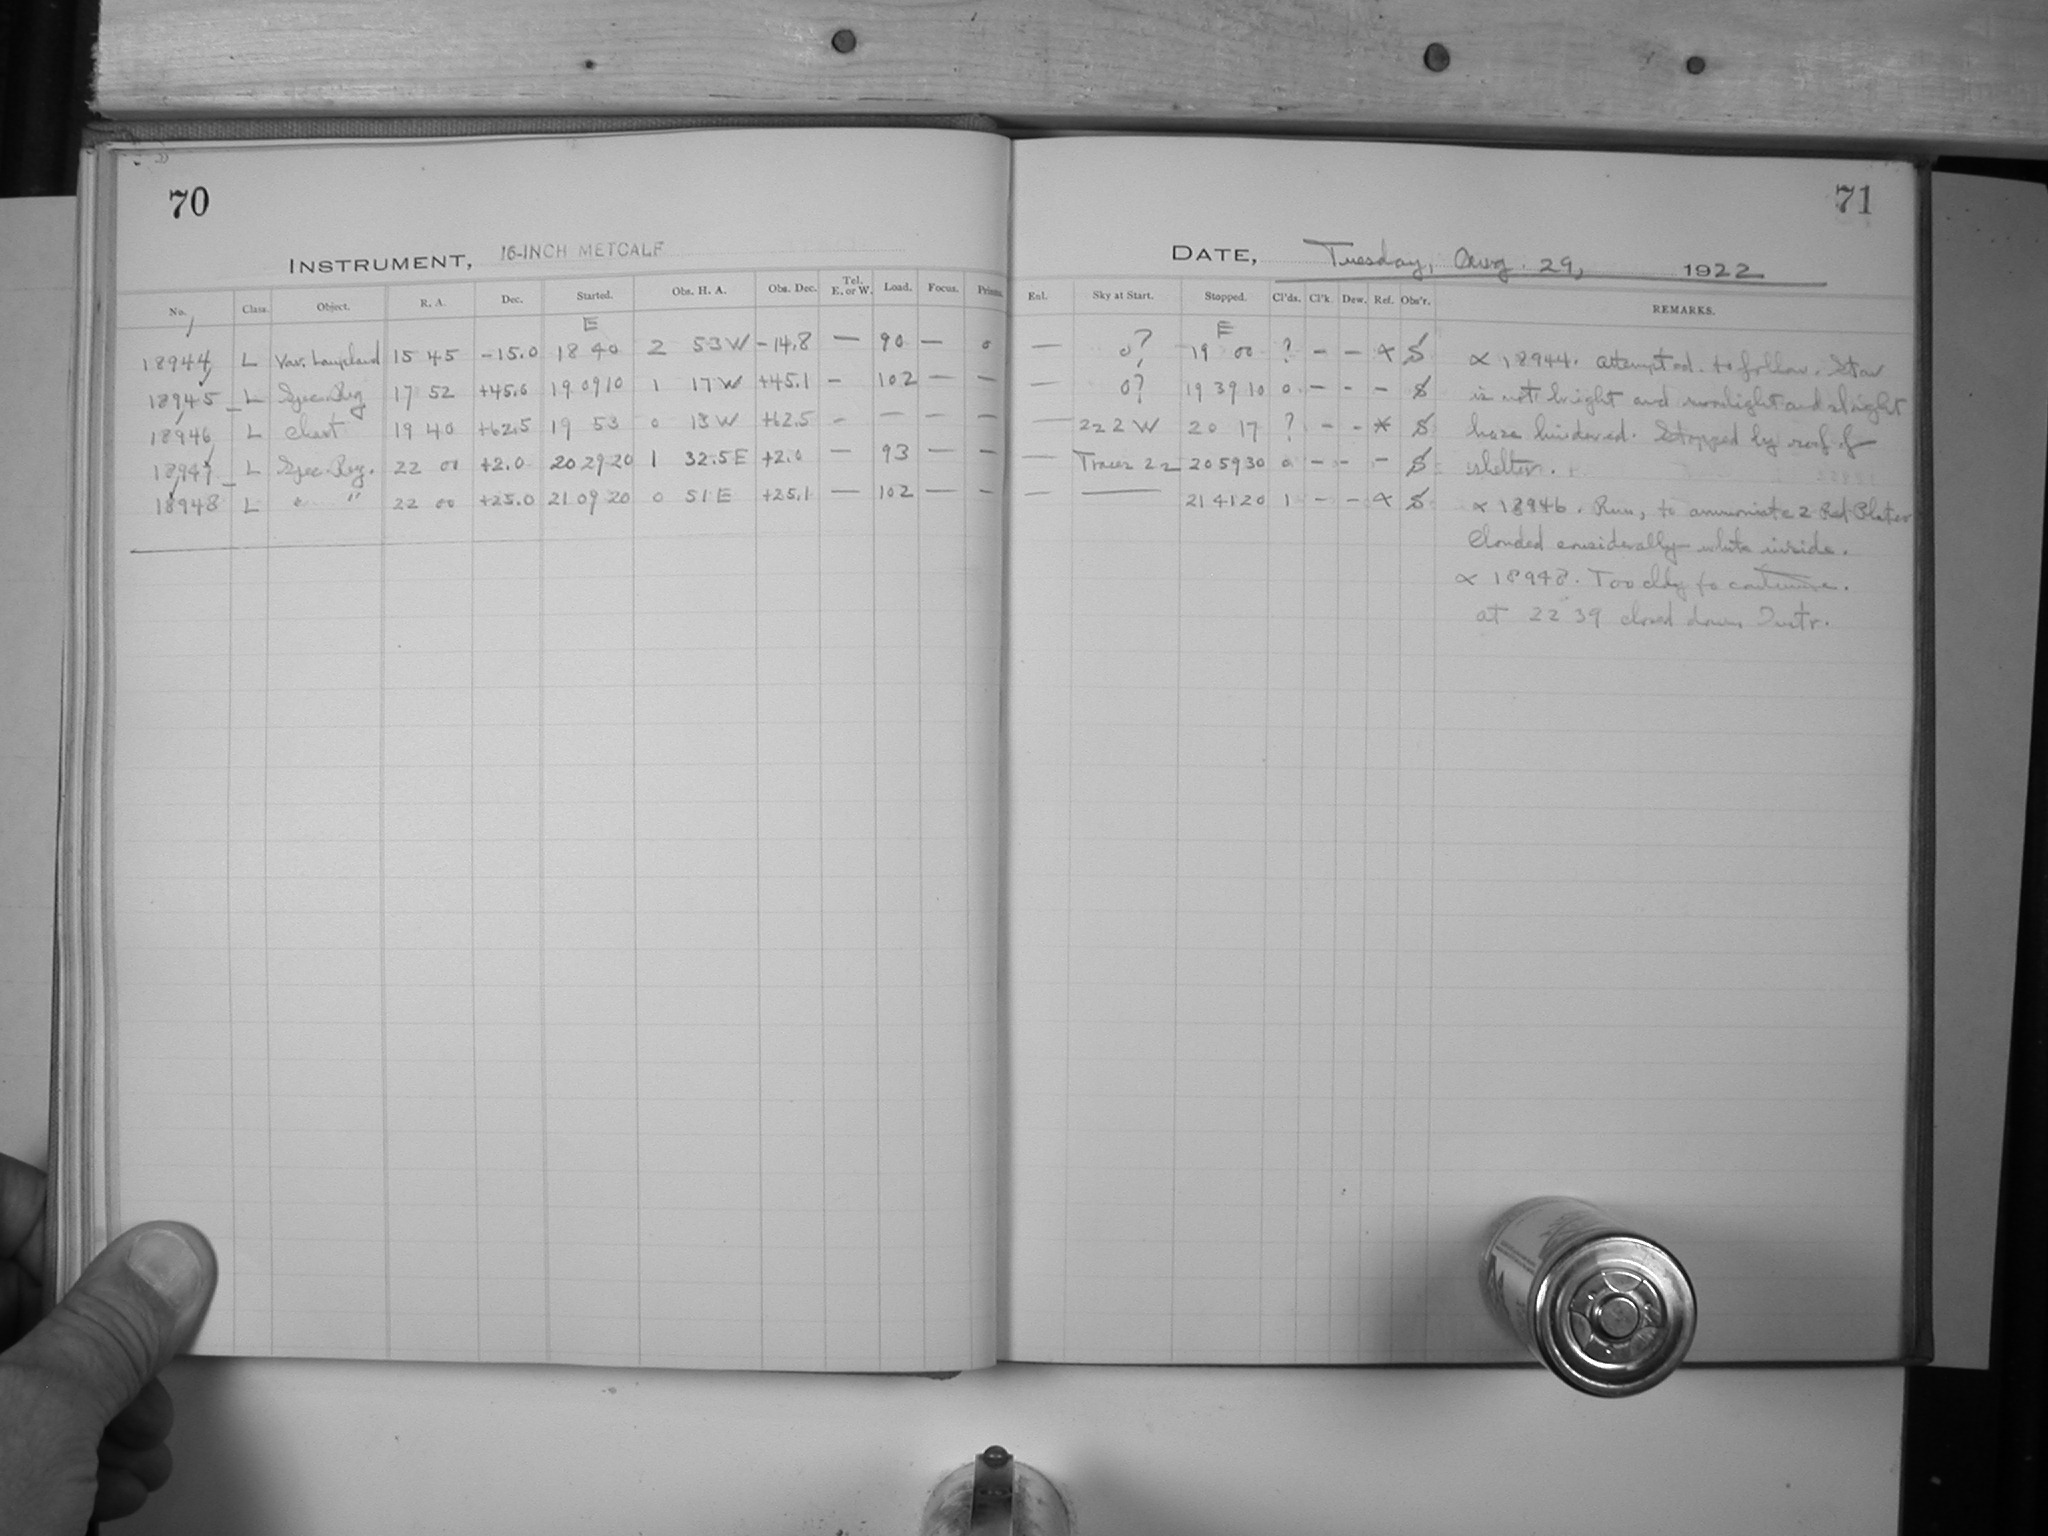 70
71
INSTRUMENT, 16-INCH METCALF
DATE, Tuesday, Aug. 29, 1922
No. Class. Object. R. A. Dec. Started. Obs. H. A. Obs. Dec. Tel. E. or W. Load. Focus. Prisms. Enl. Sky at Start. Stopped. Cl'ds. Cl'k. Dew. Ref. Obs'r. REMARKS.
E E
18944 L Var. Lampland 15 45 -15.0 18 40 2 53 W -14.8 — 90 — 0 — 0? 19 00 ? - -
18945 L Spec. Reg. 17 52 +45.0 19 09 10 1 17 W +45.1 - 102 — — — 0? 19 39 10 0 - - -
18946 L Chart 19 40 +62.5 19 53 0 13 W +62.5 - — — — — 222 W 20 17 ? - - *
18947 L Spec. Reg. 22 00 +2.0 20 29 20 1 32.5 E +2.0 — 93 — — — Traces 22 20 59 30 0 - - -
18948 L " " 22 00 +25.0 21 09 20 0 51 E +25.1 — 102 — - — — 21 41 20 1 - -
18944. Attempted to follow. Star
is not bright and moonlight and slight
haze hindered. Stopped by roof of
shelter.
18946. Run, to ammoniate 2 Red Plates
Clouded considerably while inside.
18948. Too cldy to continue.
at 22 39 closed down Instr.